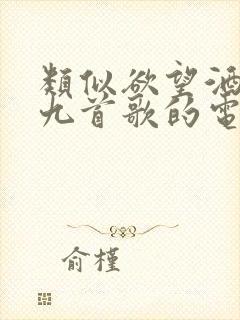 類似欲望酒
九首歌的電
俞槿